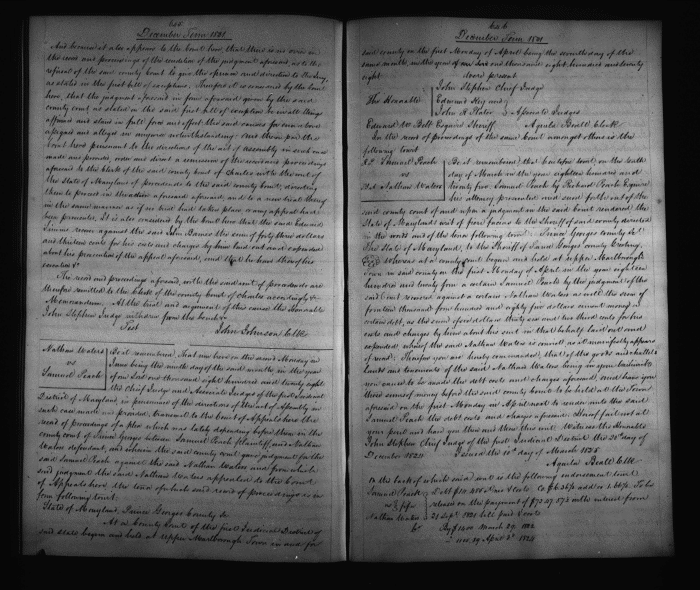 605
December Term 1831
And because it also appears to the Court here, that there is no error in
the record and proceedings of the rendition of the judgment aforesaid, as to the
refusal of the said county Court to give the opinion and direction to the Jury,
as stated in the first bill of exceptions; Therefore it is considered by the Court
here, that the judgment aforesaid in form aforesaid given by the said
county court as stated in the said first bill of exceptions be in all things
affirmed and stand in full force and effect the said causes for error above
assigned and alleged in anywise notwithstanding. And thereupon the
Court here pursuant to the directions of the act of assembly in such case
made and provided, order and direct a remission of the record and proceedings
aforesaid to the Clerk of the said county Court of Charles with the writ of
the State of Maryland of procedendo to the said county Court, directing
them to proceed in the action aforesaid, and to a new trial thereof
in the same manner as if no trial had taken place or any appeal had
been prosecuted. It is also considered by the Court here that the said Edward
recover against the said John Barnes the sum of forty three dollars
and thirteen cents for his costs and charges by him laid out and expended
about his prosecution of the appeal aforesaid, and that he have thereof his
execution &c
The record and proceedings aforesaid, with the said writ of procedendo are
therefore remitted to the Clerk of the county Court of Charles accordingly &c
Memorandum. At the trial and argument of this cause the Honorable
John Stephen Judge withdrew from the bench.
Test John Johnson Clk
Nathan Waters
vs
Samuel Peach
Be it remembered, that now here on the second Monday in
June being the ninth day of the said month, in the year
of our Lord one thousand eight hundred and twenty eight
the Chief Judge and Associate Judges of the first Judicial
District of Maryland in pursuance of the directions of the act of Assembly in
such case made and provided, transmit to the Court of Appeals here the
record of proceedings of a plea which was lately depending before them in the
county court of Prince Georges between Samuel Peach plaintiff and Nathan
Waters defendant, and wherein the said county court gave judgment for the
said Samuel Peach against the said Nathan Waters and from which
said judgment the said Nathan Waters appealed to the Court
of Appeals here, the tenor of which said record of proceedings is in
form following to wit.
State of Maryland, Prince Georges County Sc.
At a County Court of the first Judicial District of
said State begun and held at Upper Marlborough Town in and for
606
December Term 1831
said county on the first Monday of April being the seventh day of the
same month, in the year of our Lord one thousand eight hundred and twenty
eight.
Were present
The Honorable
John Stephen Chief Judge
Edmund Key and
John R Plater
Associate Judges
Edward W Belt Esquire Sheriff. Aquila Beall Clerk
In the record of proceedings of the same Court amongst others is the
following to wit
Samuel Peach
vs
Nathan Waters
Be it remembered that heretofore to wit, on the tenth
day of March in the year eighteen hundred and
twenty five Samuel Peach by Richard Peach Esquire
his attorney prosecuted and sued forth out of the
said county court of and upon a judgment in the said Court rendered the
State of Maryland writ of fieri facias to the Sheriff of said county directed
in the words and of the tenor following to wit. Prince Georges County Sct.
The State of Maryland, to the Sheriff of Prince Georges county Greeting,
Whereas at a county court begun and held at Upper Marlborough
Town in said county on the first Monday of April in the year eighteen
hundred and twenty four a certain Samuel Peach by the judgment of the
said court recovered against a certain Nathan Waters as well the sum of
fourteen thousand four hundred and eighty five dollars current money a
certain debt, as the sum of four dollars thirty six and two thirds cents for his
costs and charges by him about his suit in that behalf laid out and
expended whereof the said Nathan Waters is convict as it manifestly appears
of record. Therefore you are hereby commanded, that of the goods and chattels
lands and tenements of the said Nathan Waters being in your bailiwick
you cause to be made the debt costs and charges aforesaid, and have you
those sums of money before the said county Court to be held at the Town
aforesaid on the first Monday in April next to render unto the said
Samuel Peach the debt costs and charges aforesaid. Hereof fail not at
your peril and have you then and there this writ. Witness the Honorable
John Stephen Chief Judge of the first Judicial District the day of
December 1824 Issued the 10th day of March 1825
Aquila Beall Clk
On the back of which said writ is the following endorsement to wit
Samuel Peach
vs
Nathan Waters
To be
release on the payment of with interest from
21 Sept. 1821 till paid & costs
March 29 1822
April 1823